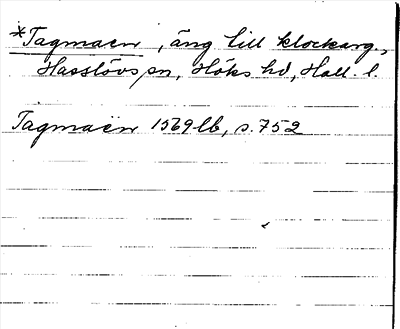 *Tagmaen, äng till klockarg.,
Hasslövs sn, Höks hd, Hall. l.
Tagmaen 1569 lb, s. 752